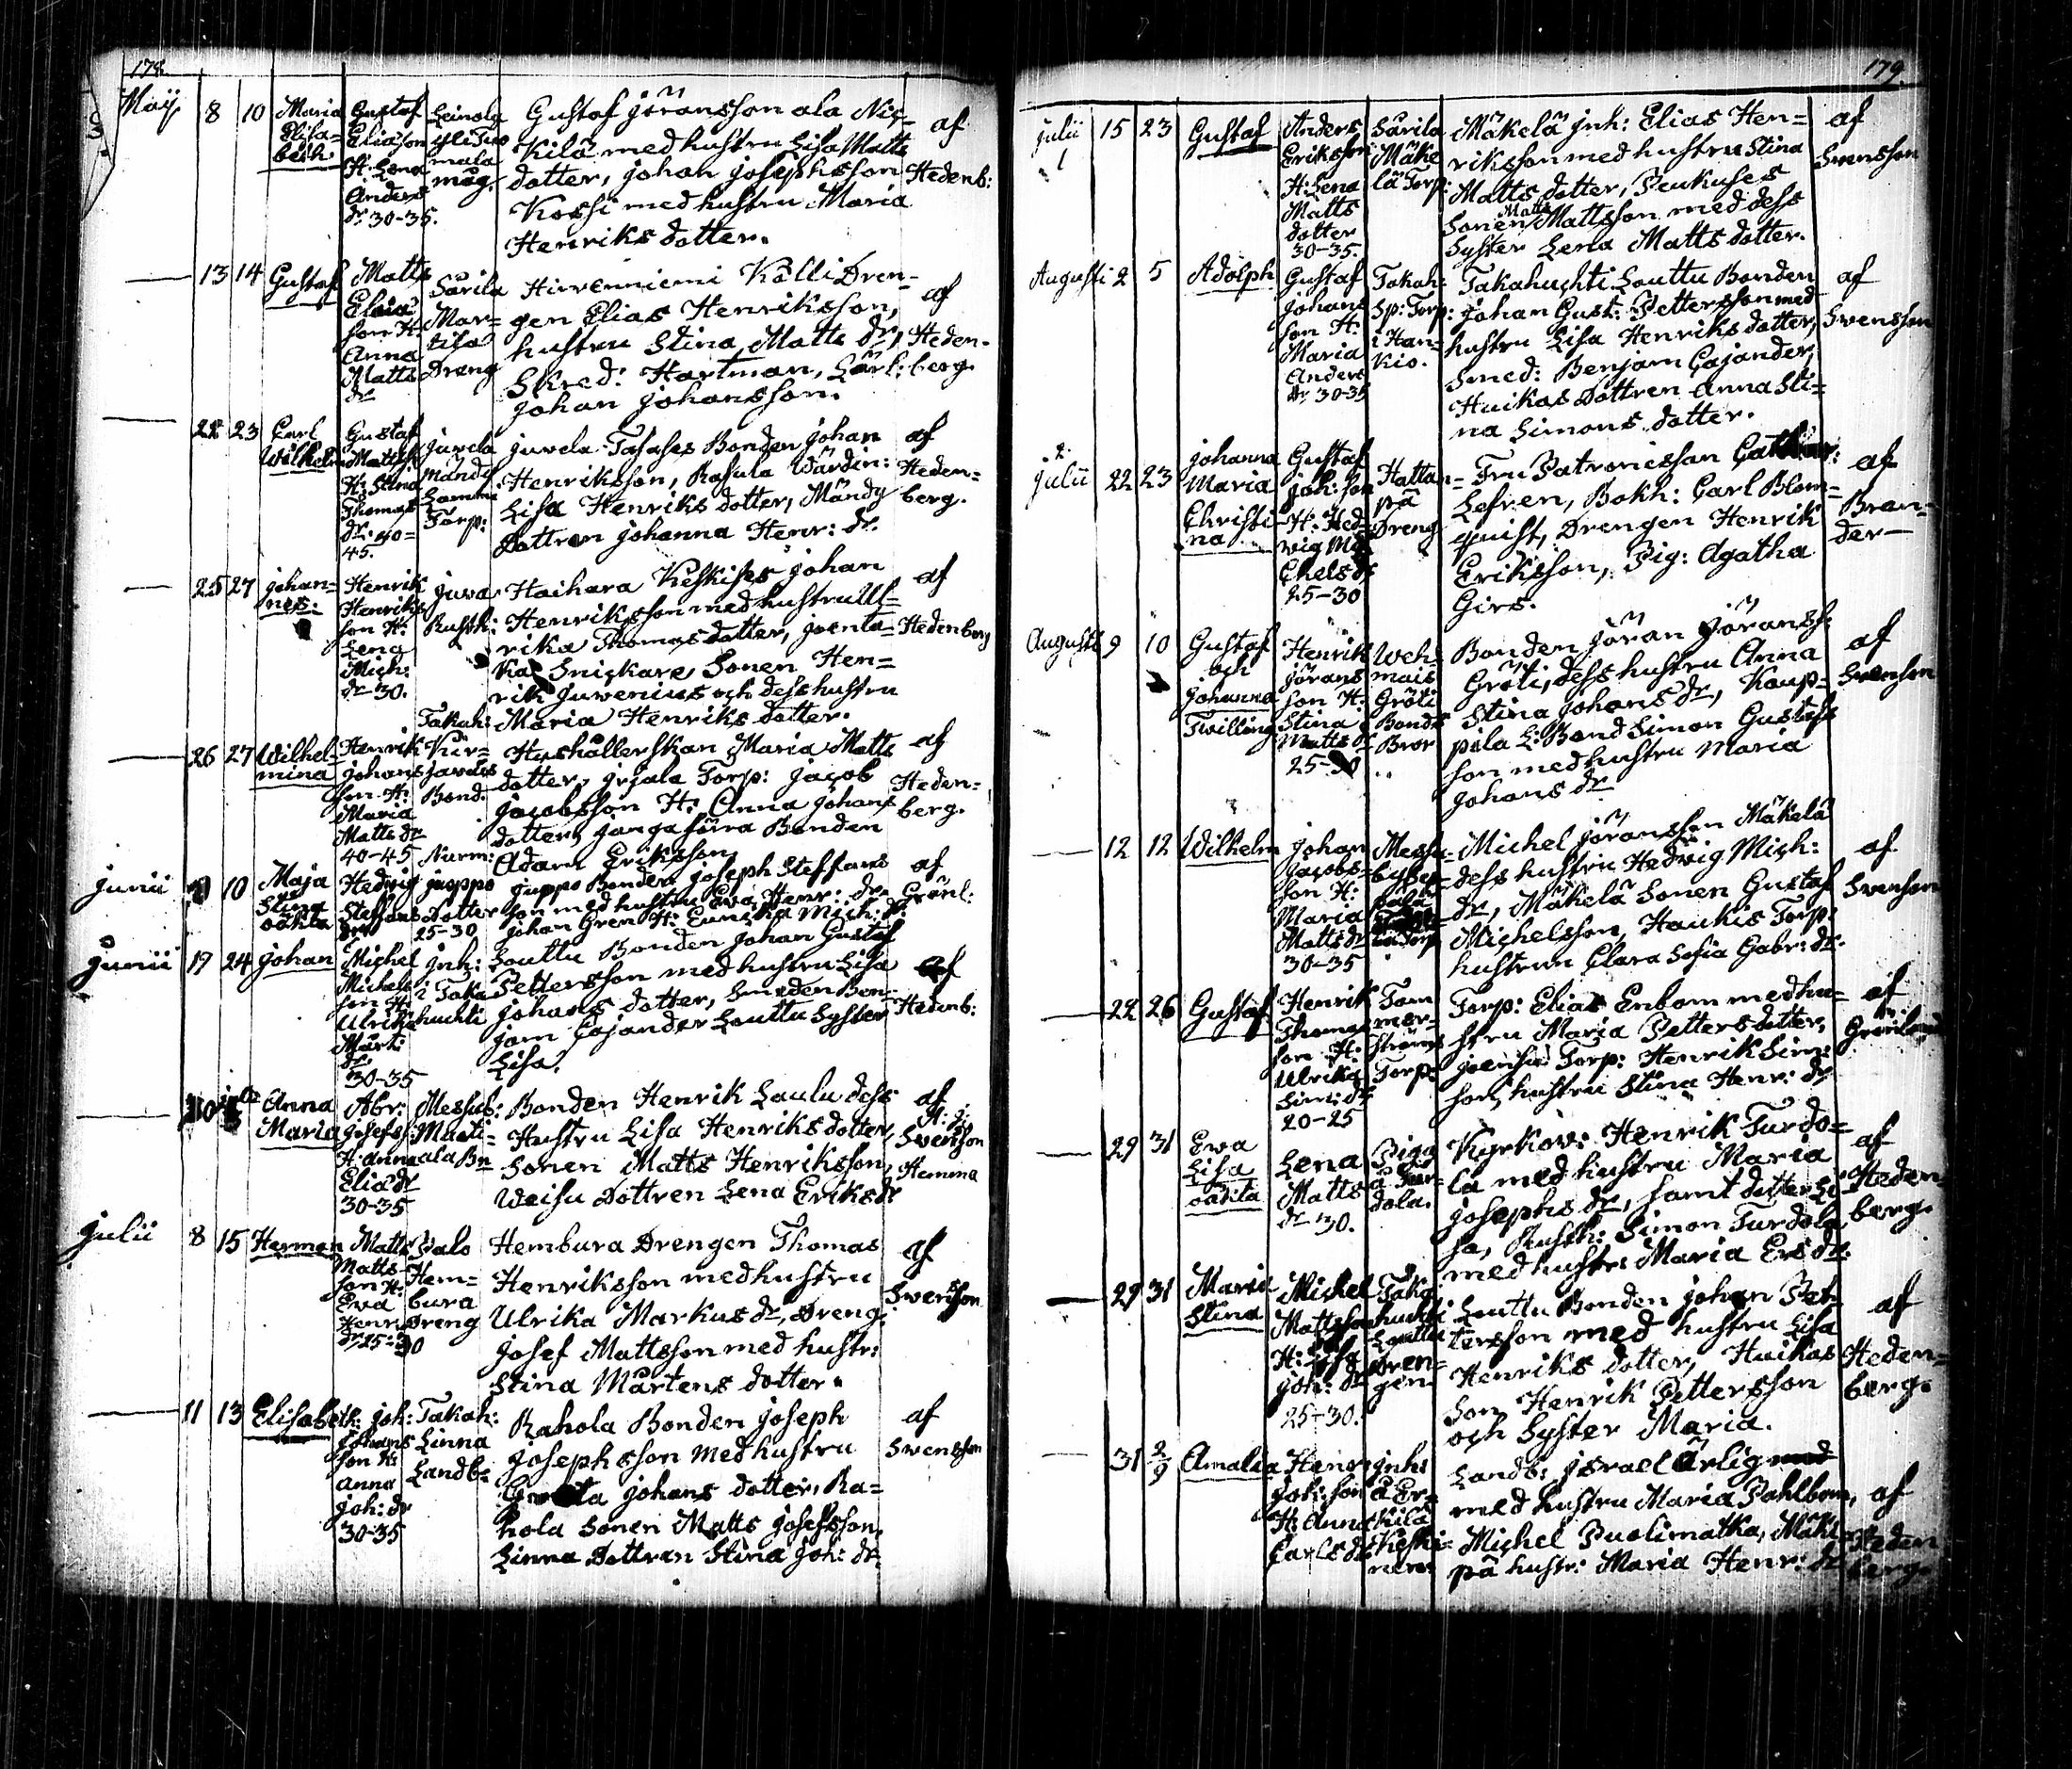 178.
Maij 8 10 Maria Elisa= beth
Gustaf Eliason H: Lena Anders dr 30-35.
Leinola mala måg.
Gustaf Jöransson ala Nic=
kilä med hustru Lisa Matts
dotter, Johan Josephsson
Kossi med hustru Maria
Henriks dotter.
af Hedenb:
13 14 Gustaf
Matts Elias son H: Anna Matts dr
Särila Mar= tila Dreng
Hirvenniemi Kölli Dren=
gen Elias Henriksson,
hustru Stina Matts dr,
Skred: Hartman, Lärl:
Johan Johansson.
af Heden= berg.
22 23 Carl Wilhelm
Gustaf Mattss: H: Stina Thomas dr. 40= 45.
Juvela Mändy Torp:
Juvela Tasases Bonden Johan
Henriksson, Rasula Wärdin:
Lisa Henriks dotter, Mändy
Dottren Johanna Henr: dr.
af Heden= berg.
25 27 Johan= nes.
Henrik Henriks son H: Lena Mich: dr 30.
Juva Rusth:
Haihara Keskises Johan
Henriksson med hustru Ul=
rika Thomas dotter, Juenla=
Kal Snickare Sonen Hen=
rik Juvenius och dess hustru
Maria Henriks dotter.
af Hedenberg
26 27 Wilhel= mina
Henrik Johans son H: Maria Matts dr 40-45
Takah: Kir= javais Bond:
Hushållerskan Maria Matts
dotter, Jrjala Torp: Jacob
Jacobsson H: Anna Johans
dotter, Jangajärra Bonden
Adam Eriksson,
af Heden= berg.
Junii 10 Maja Stina oäkta
Hedvig Steffans dr
Nurm: Juppo Dotter 25-30
Juppo Bonden Joseph Steffans
son med hustru Eva Henr: dr.
Johan Gren H: Eunika Mich: dr.
af Grönl:
Junii 19 24 Johan
Michel Michels son H: Ulrika Mårt: dr. 30-35
Jnh: i Taka huchti
Louttu Bonden Johan Gustaf
Pettersson med hustru Lisa
Johans dotter, Smeden Ben=
jam Cajander Louttu Syster
Lisa.
af Hedenb:
Anna Maria
Abr: Josefss: H: Anna Elia dr 30-35
Messub: Marti= ala Bn
Bonden Henrik Laulu dess
Hustru Lisa Henriks dotter,
Sonen Matts Henriksson,
Weisu Dottren Lena Eriks dr
af H: J: Svensson Hemma
Julii 8 15 Herman
Matts Matts= son H: Eva Henr: dr 25-30
Palo Hem= bura Dreng
Hembura Drengen Thomas
Henriksson med hustru
Ulrika Markus dr, Dreng.
Josef Mattsson med hustr:
Stina Mårtens dotter.
af Svensson
11 13 Elisabeth:
Joh: Johans son H: Anna Joh: dr 30-35
Takah: Linna Landb=
Rahola Bonden Joseph
Josephsson med hustru
Johans dotter, Ra=
hola Sonen Matts Josefsson,
Linna Dottren Stina Joh: dr
af Svensson
179.
Julii 15 23 Gustaf
Anders Eriksson H: Lena Matts dotter 30-35.
Särila Mäke lä Torp:
Mäkelä Jnh: Elias Hen=
riksson med hustru Stina
Matts dotter, Peukuses
Sonen Matts Mattsson med dess
Syster Lena Matts dotter.
af Svensson
Augusti 2 5 Adolph
Gustaf Johans son H: Maria Anders dr 30-35
Takah: Sp: Torp: i Han= kio.
Takahuchti Louttu Bonden
Johan Gust: Pettersson med
hustru Lisa Henriks dotter,
Smed: Benjam Cajander,
Huikas Dottren Anna Sti=
na Simons dotter.
af Svensson
Julii 22 23 Johanna Maria Christi= na
Gustaf Joh: son H: Hed= vig Mi= chels dr 25-30
Hattan= pä Dreng
Fru Patronessan
Lefren, Bokh: Carl Blom=
quist, Drengen Henrik
Eriksson, Pig: Agatha
Girs.
af Bran= der
Augusti 9 10 Gustaf och Johanna Twilling
Henrik Jörans son H: Stina Matts dr 25-30
Weh= mais Gröti Bonds Bror
Bonden Jöran Jöranss:
Gröti, dess hustru Anna
Stina Johans dr, Kaup=
pila L: Bond Simon Gustafs
son med hustru Maria
Johans dr
af Svensson
12 12 Wilhelm
Johan Jacobs= son H: Maria Matts dr 30-35
Messu= byby
Michel Jöransson Mäkelä
dess hustru Hedvig Mich:
dr, Mäkelä Sonen Gustaf
Michelsson, Haukis Torp:
hustrun Clara Sofia Gabr: dr.
af Svensson
22 26 Gustaf
Henrik Thomas son H: Ulrika Sim: dr 20-25
Tam mer= ströms Torp:
Torp: Elias Enbom med hu=
stru Maria Petters dotter,
Torp: Henrik Sim:
son, hustru Stina Henr: dr
af Grönlund
29 31 Ewa Lisa oäkta
Lena Matts dr 30.
Piga å Tur= dola.
Kyrkov: Henrik Turdo=
la med hustru Maria
Josephs dr, samt dotter Li=
sa, Rusth: Simon Turdola
med hustr: Maria Ers dr.
af Heden= berg.
29 31 Maria Stina
Michel Mattsson H: Lisa Joh: dr 25-30.
Taka huchti Louttu Dren= gen
Louttu Bonden Johan Pet=
tersson med hustru Lisa
Henriks dotter, Huikas
Son Henrik Pettersson
och Syster Maria.
af Heden= berg.
31 2/9 Amalia
Henr: Joh: son H: Anna Carls dr
Jnh: å Er= kilä Keski= nen:
Landb: Jsrael Ärlig
med hustru Maria Pahlbom,
Michel Puolimatka, Mäki
pä hustr: Maria Henr: dr
af Heden berg.